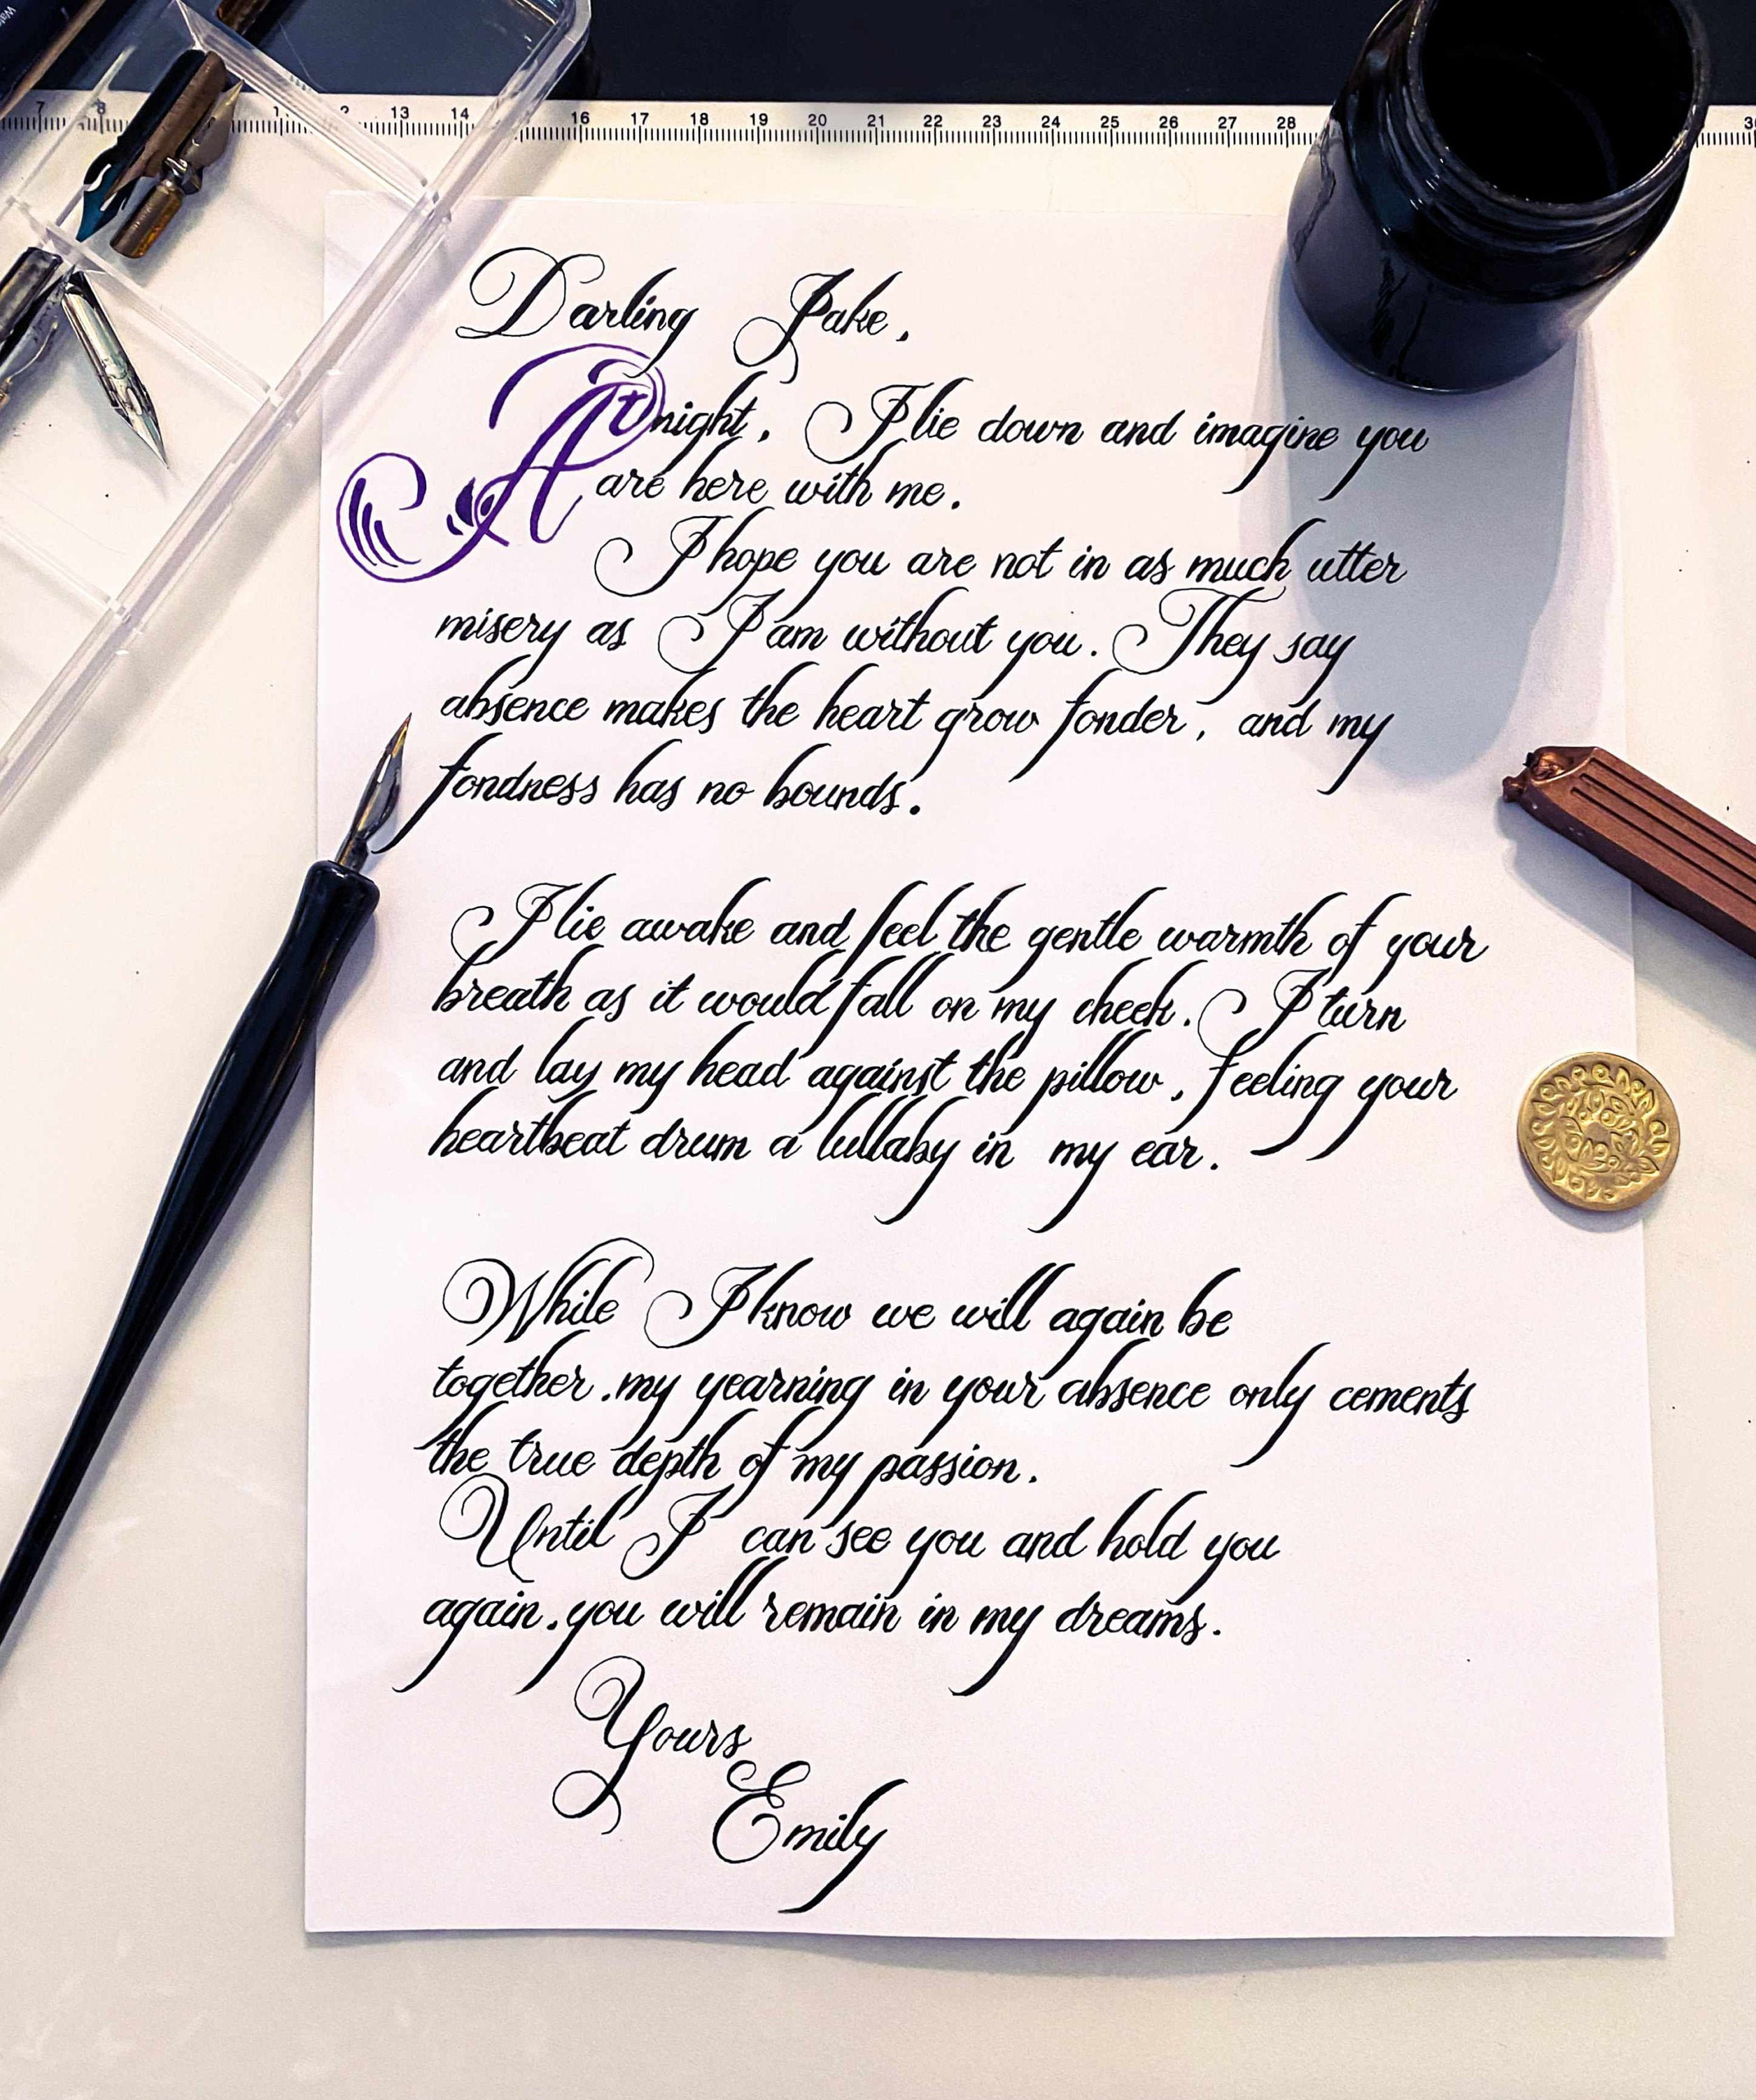 7 8 13 14 16 17 18 19 20 21 22 23 24 25 26 27 28
Darling Jake,
At night, I lie down and imagine you
are here with me.
I hope you are not in as much utter
misery as I am without you. They say
absence makes the heart grow fonder, and my
fondness has no bounds.
I lie awake and feel the gentle warmth of your
breath as it would fall on my cheek. I turn
and lay my head against the pillow, feeling your
heartbeat drum a lullaby in my ear.
While I know we will again be
together, my yearning in your absence only cements
the true depth of my passion.
Until I can see you and hold you
again, you will remain in my dreams.
Yours
Emily